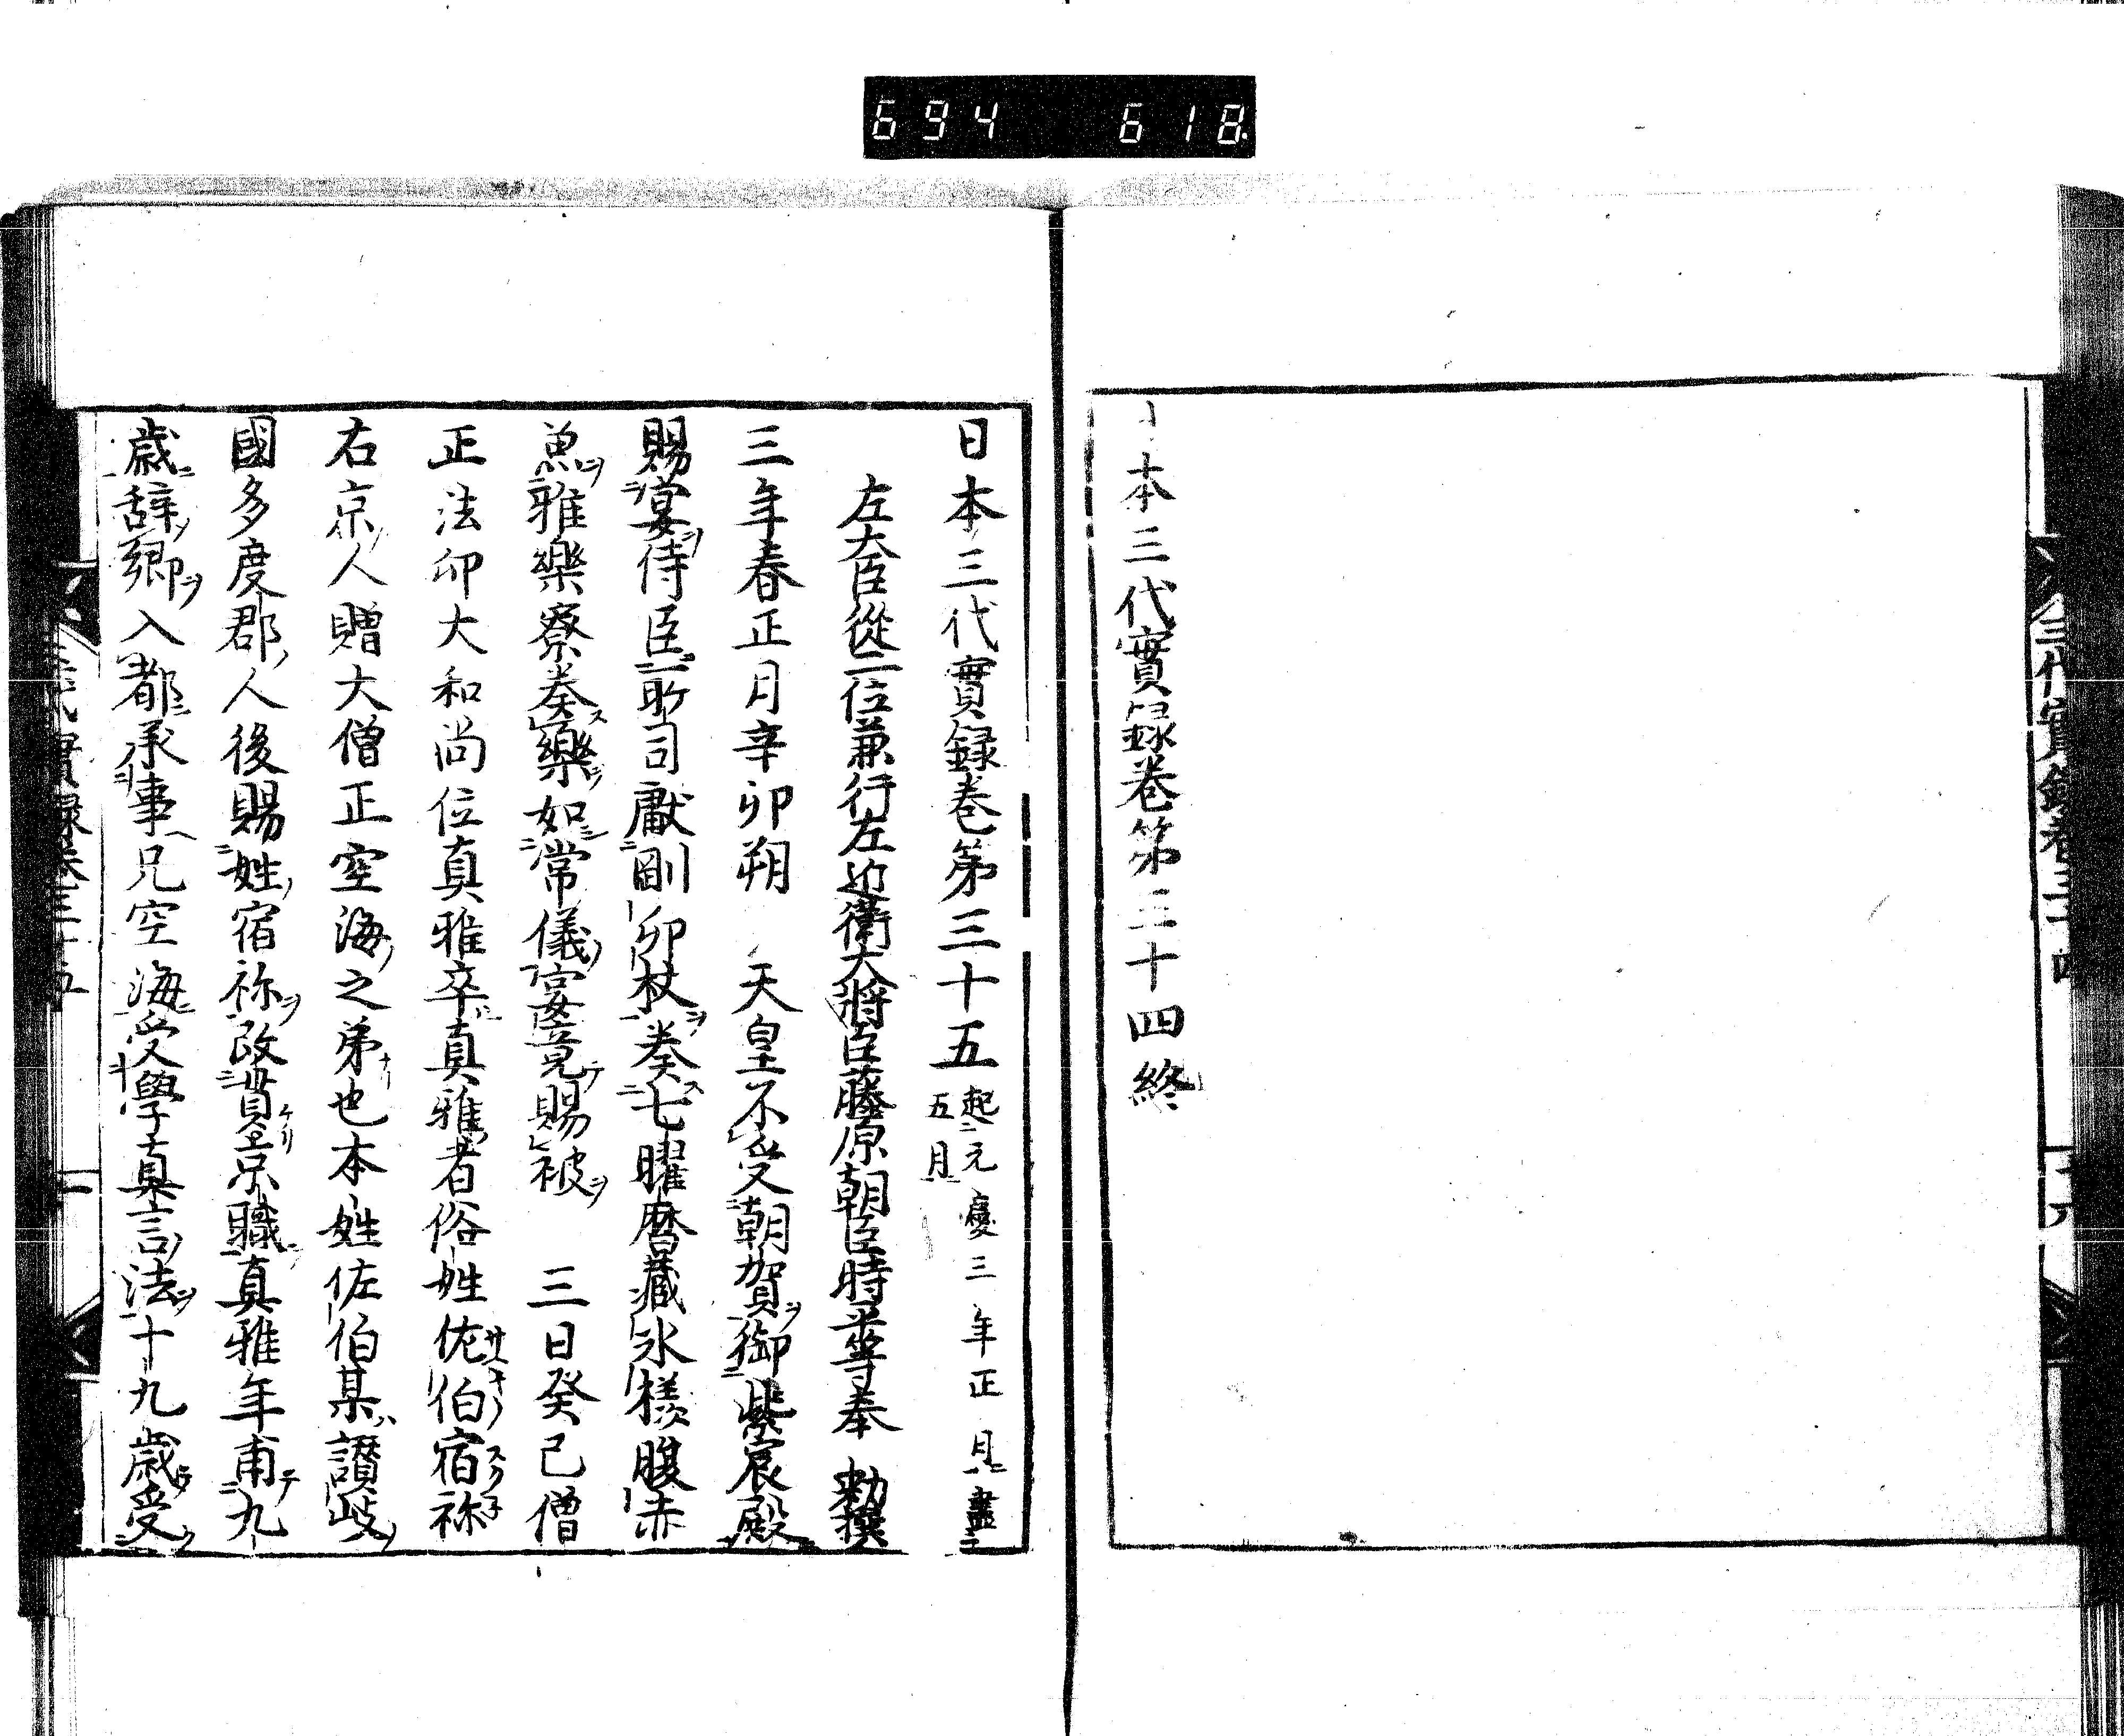 694 618
三代實録卷三十四
本三代實録卷第三十四終
日本三代實録卷第三十五 起元慶三年正月盡五月
左大臣從二位兼行左近衛大將臣藤原朝臣時平等奉 勅撰
三年春正月辛卯朔 天皇不受朝賀ヲ御紫宸殿
賜宴ヲ侍臣所司獻剛卯杖ヲ奏ス七曜暦藏氷様腹赤
魚ヲ雅樂寮奏ス樂ヲ如常儀宴竟テ賜被ヲ 三日癸巳僧
正法印大和尚位真雅卒真雅者俗姓佐伯宿祢
右京ノ人贈大僧正空海ノ之弟也本姓佐伯某讃岐ノ
國多度郡ノ人後賜姓ノ宿祢ヲ改貫京職真雅年甫テ九
歳辞郷ヲ入都承事兄空海受學真言ノ法ヲ十九歳受
實録卷三十五 一